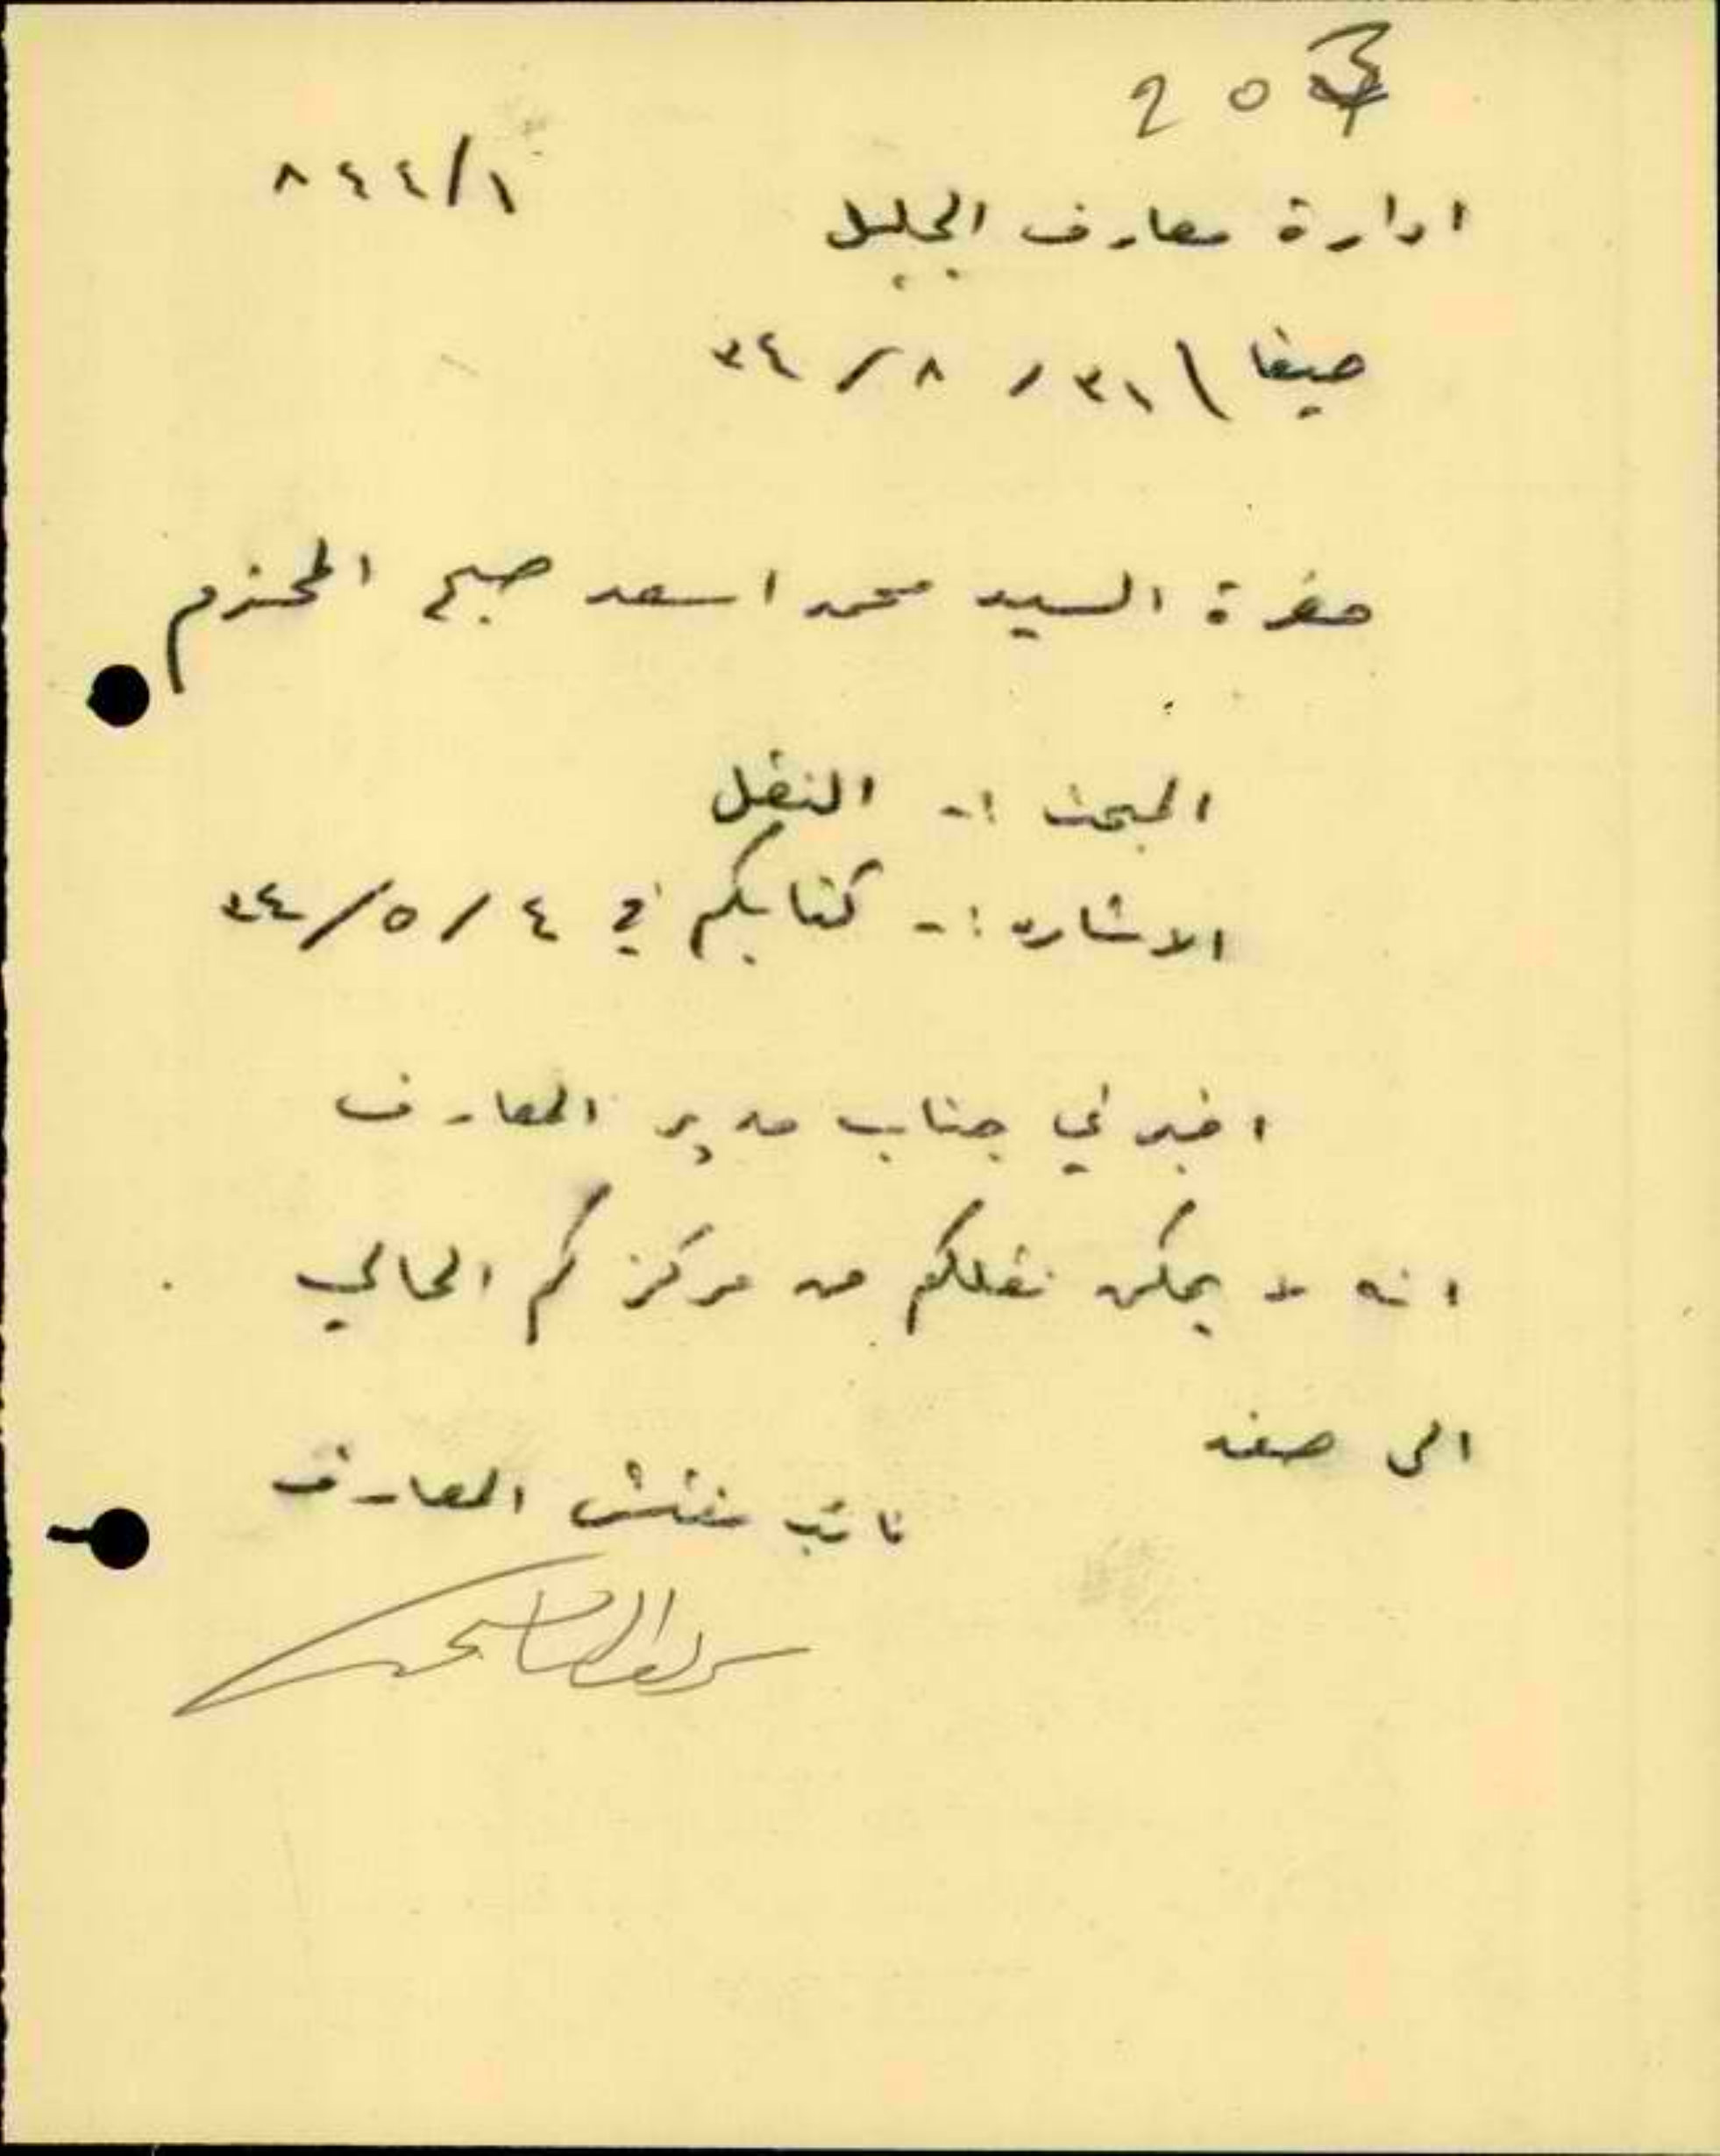 20
٨٤٤/١
ادارة معارف الجليل
حيفا \ ٣١ / ٨ / ٣٤
حضرة السيد محمد اسعد صبح المحترم
المبحث :- النقل
الاشاره :- كتابكم في ٤ / ٥ / ٣٤
اخبرني جناب مدير المعارف
انه لا يمكن نقلكم من مركزكم الحالي
الى صفد
نائب مفتش المعارف